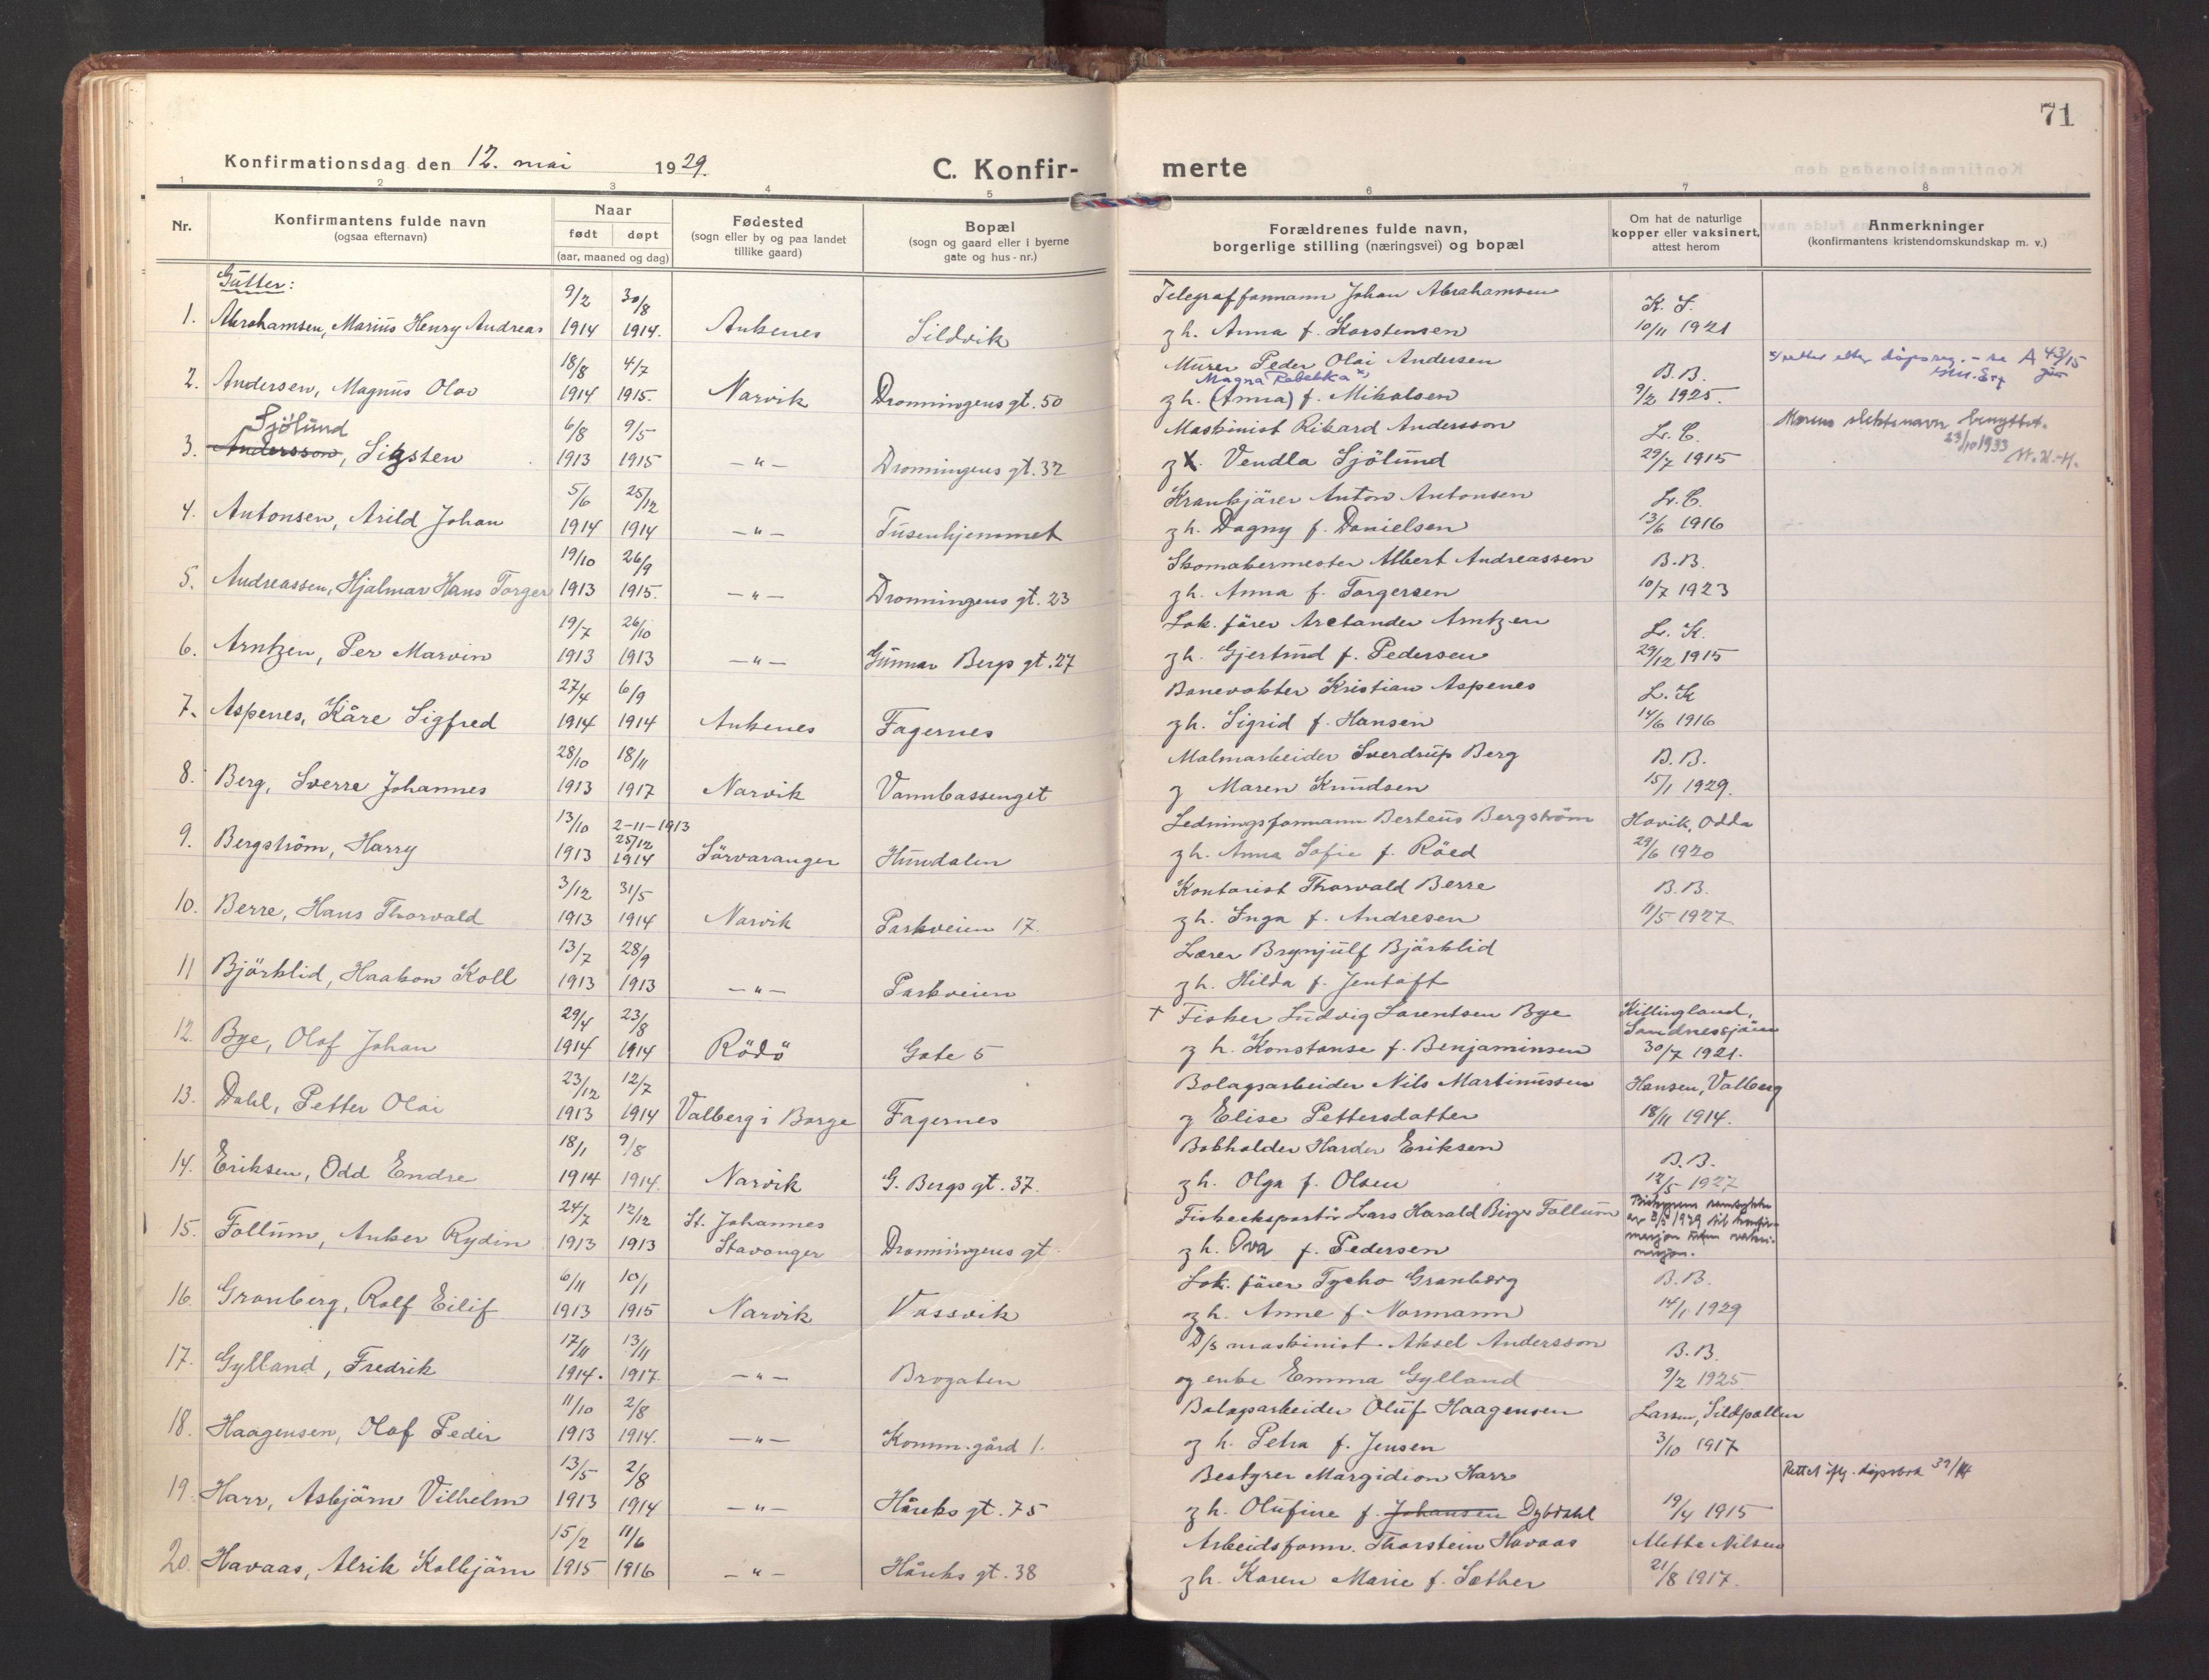 71
Konfirmationsdag den 12. mai 1929.
C. Konfir-merte
1 2 3 4 5 6 7 8
Nr.
Konfirmantens fulde navn
(ogsaa efternavn)
Naar
født døpt
(aar, maaned og dag)
Fødested
(sogn eller by og paa landet
tillike gaard)
Bopæl
(sogn og gaard eller i byerne
gate og hus-nr.)
Forældrenes fulde navn,
borgerlige stilling (næringsvei) og bopæl
Om hat de naturlige
kopper eller vaksinert,
attest herom
Anmerkninger
(konfirmantens kristendomskundskap m. v.)
Gutter:
9/2 30/8 Telegrafformann Johan Abrahamsen K. S.
1. Abrahamsen, Marius Henry Andreas 1914 1914. Ankenes Sildvik og h. Anna f. Karstensen 10/11 1921
18/8 4/7 Murer Peder Olai Andersen B.B. x) rettet efter dåpsreg. - se A 43/15
Magna Rebekka x)
2. Andersen, Magnus Olav 1914 1915. Narvik Dronningens gt. 50 og h. (Anna) f. Mikalsen 9/2 1925.
Sjölund 6/8 9/5 Maskinist Rikard Andersson L. C. Morens slektsnavn benyttet.
3. Andersson, Sigsten 1913 1915 -"- Dronningens gt. 32 og Vendla Sjölund 29/7 1915 23/10 1933
5/6 25/12 Krankjörer Anton Antonsen L. C.
4. Antonsen, Arild Johan 1914 1914 -"- Tusenhjemmet og h. Dagny f. Danielsen 13/6 1916
19/10 26/9 Skomakermester Albert Andreassen B.B.
5. Andreassen, Hjalmar Hans Torger 1913 1915. -"- Dronningens gt. 23 og h. Anna f. Torgersen 10/7 1923
19/7 26/10 Lok. förer Arctander Arntzen L. K.
6. Arntzen, Per Marvin 1913 1913 -"- Gunnar Bergs gt. 27 og h. Gjertrud f. Pedersen 29/12 1915
27/4 6/9 Banevokter Kristian Aspenes L. K
7. Aspenes, Kåre Sigfred 1914 1914 Ankenes Fagernes og h. Sigrid f. Hansen 14/6 1916
28/10 18/11 Malmarbeider Sverdrup Berg B. B.
8. Berg, Sverre Johannes 1913 1917 Narvik Vannbassenget og Maren Knudsen 15/1 1929.
13/10 2-11-1913 Ledningsformann Berteus Bergström Havik, Odda
25/12
9. Bergström, Harry 1913 1914 Sörvaranger Hundalen og h. Anna Sofie f. Röed 29/6 1920
3/12 31/5 Kontorist Thorvald Berre B. B.
10. Berre, Hans Thorvald 1913 1914 Narvik Parkveien 17. og h. Inga f. Andresen 11/5 1927
13/7 28/9 Lærer Brynjulf Björklid
11 Björklid, Haakon Koll 1913 1913 -"- Parkveien og h. Hilda f. Jentoft
29/4 23/8 + Fisker Ludvig Lorentsen Bye Killingland, Sandnessjöen
12. Bye, Olaf Johan 1914 1914 Rödö Gate 5 og h. Konstanse f. Benjaminsen 30/7 1921.
23/12 12/7 Bolagsarbeider Nils Martinussen Hansen, Valberg
13. Dahl, Petter Olai 1913 1914 Valberg i Borge Fagernes og Elise Pettersdatter 18/11 1914.
18/1 9/8 Bokholder Harder Eriksen B. B.
14. Eriksen, Odd Endre 1914 1914. Narvik G. Bergs gt. 37. og h. Olga f. Olsen 12/5 1927
24/7 12/12 St. Johannes Fiskeeksportör Lars Harald Birger Follum Biskopens samtykke av 3/5 1929 til konfirmasjon uten vaksinasjon.
15. Follum, Anker Rydin 1913 1913 Stavanger Dronningens gt. og h. Ova f. Pedersen
6/11 10/1 Lok. förer Tycho Granberg B. B.
16. Granberg, Rolf Eilif 1913 1915 Narvik Vassvik og h. Anne f. Normann 14/1 1929
17/11 13/11 D/s maskinist Aksel Andersson B. B.
17. Gylland, Fredrik 1914. 1917. -"- Brogaten og enke Emma Gylland 9/2 1925
11/10 2/8 Bolagsarbeider Oluf Haagensen Larsen, Sildpollen
18. Haagensen, Olaf Peder 1913 1914. -"- Komm. gård 1. og h. Petra f. Jensen 3/10 1917
13/5 2/8 Bestyrer Margidion Harr Rettet iflg. dåpsbok 39/14
19. Harr, Asbjörn Vilhelm 1913 1914 -"- Håreks gt. 75 og h. Olufine f. Johansen Dybdahl 19/4 1915
15/2 11/6 Arbeidsform. Thorstein Havaas Mette Nilsen
20. Havaas, Alrik Kolbjörn 1915 1916 -"- Håreks gt. 38 og h. Karen Marie f. Sæther 21/8 1917.